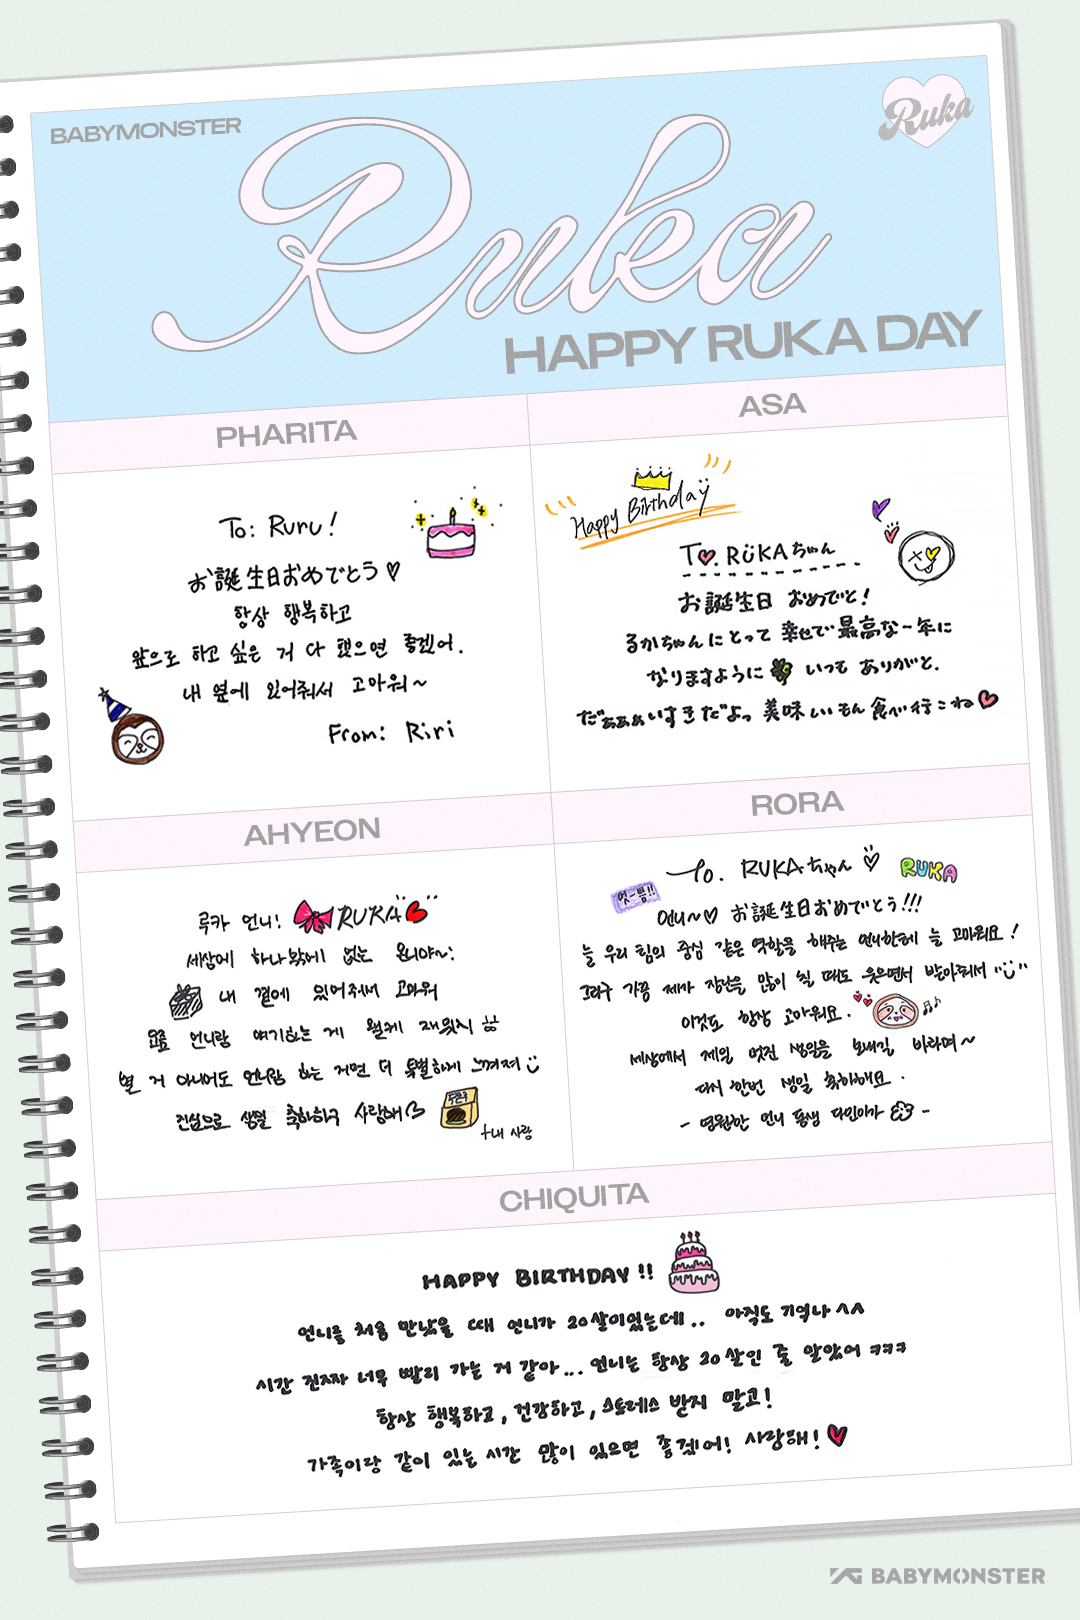 BABYMONSTER
Ruka
Ruka
HAPPY RUKA DAY
PHARITA
To: Ruru!
お誕生日おめでとう♡
항상 행복하고
앞으로 하고 싶은 거 다 했으면 좋겠어.
내 옆에 있어줘서 고마워~
From: Riri
ASA
Happy Birthday
To. RUKAちゃん
お誕生日 おめでと!
るかちゃんにとって 幸せで最高な一年に
なりますように いつも ありがと.
だぁぁぁいすきだよっ 美味しいもん食べ行こね♡
AHYEON
루카 언니! RUKA
세상에 하나밖에 없는 언니야~!
내 곁에 있어줘서 고마워
요즘 언니랑 얘기하는 게 왤케 재밌지
별 거 아니어도 언니랑 하는 거면 더 특별하게 느껴져
진심으로 생일 축하하구 사랑해♡
두쫀쿠
+내 사랑
RORA
To. RUKAちゃん♡
RUKA
엇-쁨!!
언니~♡ お誕生日おめでとう!!!
늘 우리 팀의 중심 같은 역할을 해주는 언니한테 늘 고마워요!
그리구 가끔 제가 장난을 많이 칠 때도 웃으면서 받아줘서
이것도 항상 고마워요.
세상에서 제일 멋진 생일을 보내길 바라며~
다시 한번 생일 축하해요.
- 영원한 언니 동생 다인이가 -
CHIQUITA
HAPPY BIRTHDAY!!
언니를 처음 만났을 때 언니가 20살이었는데.. 아직도 기억나^^
시간 진짜 너무 빨리 가는 거 같아... 언니는 항상 20살인 줄 알았어 ㅋㅋㅋ
항상 행복하고, 건강하고, 스트레스 받지 말고!
가족이랑 같이 있는 시간 많이 있으면 좋겠어! 사랑해!♥
YG BABYMONSTER